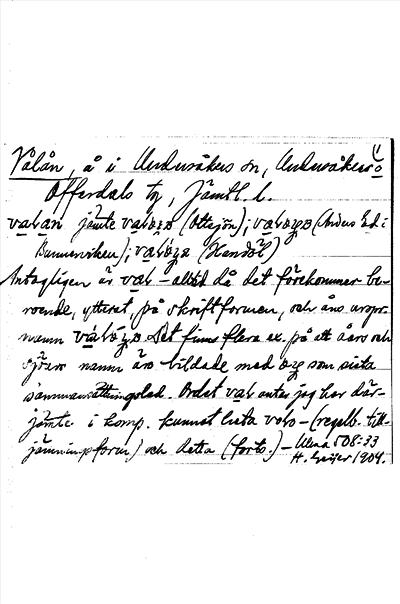 1
Vålån, å i Undersåkers sn, Undersåkers o
Offerdals tg, Jämtl. l.
valan jämte valoza (Ottsjön); valoza (Anders Ed. i
Bunnerviken); valoza (Handöl)
Antagligen är val- alltid då det förekommer be-
roende, ytterst, på skriftformen, och åns urspr.
namn valoza. Det finns flera ex. på att åars och
sjöars namn äro bildade med oza som sista
sammansättningsled. Ordet val antar jag har där-
jämte i komp. kunnat lista volo- (regelb. till-
jämningsform) och detta (forts.) - Ulma 508:33
H. Geijer 1904.